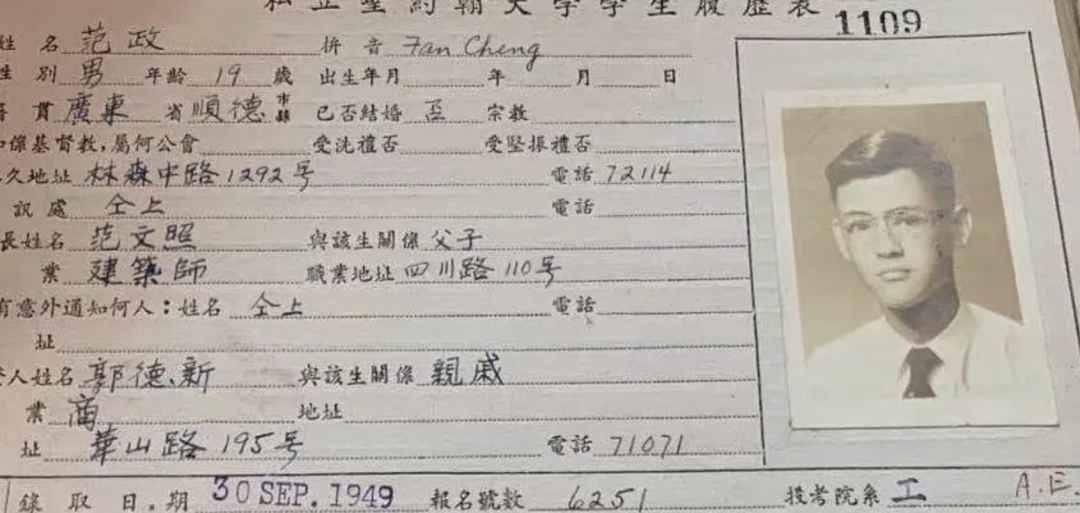 私立聖約翰大學學生履歷表
1109
姓名 范政 拼音 Fan Cheng
性別 男 年齡 19 歲 出生年月 年 月 日
貫 廣東 省 順德 市縣 已否結婚 否 宗教
係基督教,屬何公會 受洗禮否 受堅振禮否
久地址 林森中路1292号 電話 72114
訊處 仝上 電話
長姓名 范文照 與該生關係 父子
業 建築師 職業地址 四川路110号
有意外通知何人:姓名 仝上 電話
址
人姓名 郭德新 與該生關係 親戚
業 商 地址
址 華山路195号 電話 71071
錄取日期 30 SEP. 1949 報名號數 6251 投考院系 工 A.E.